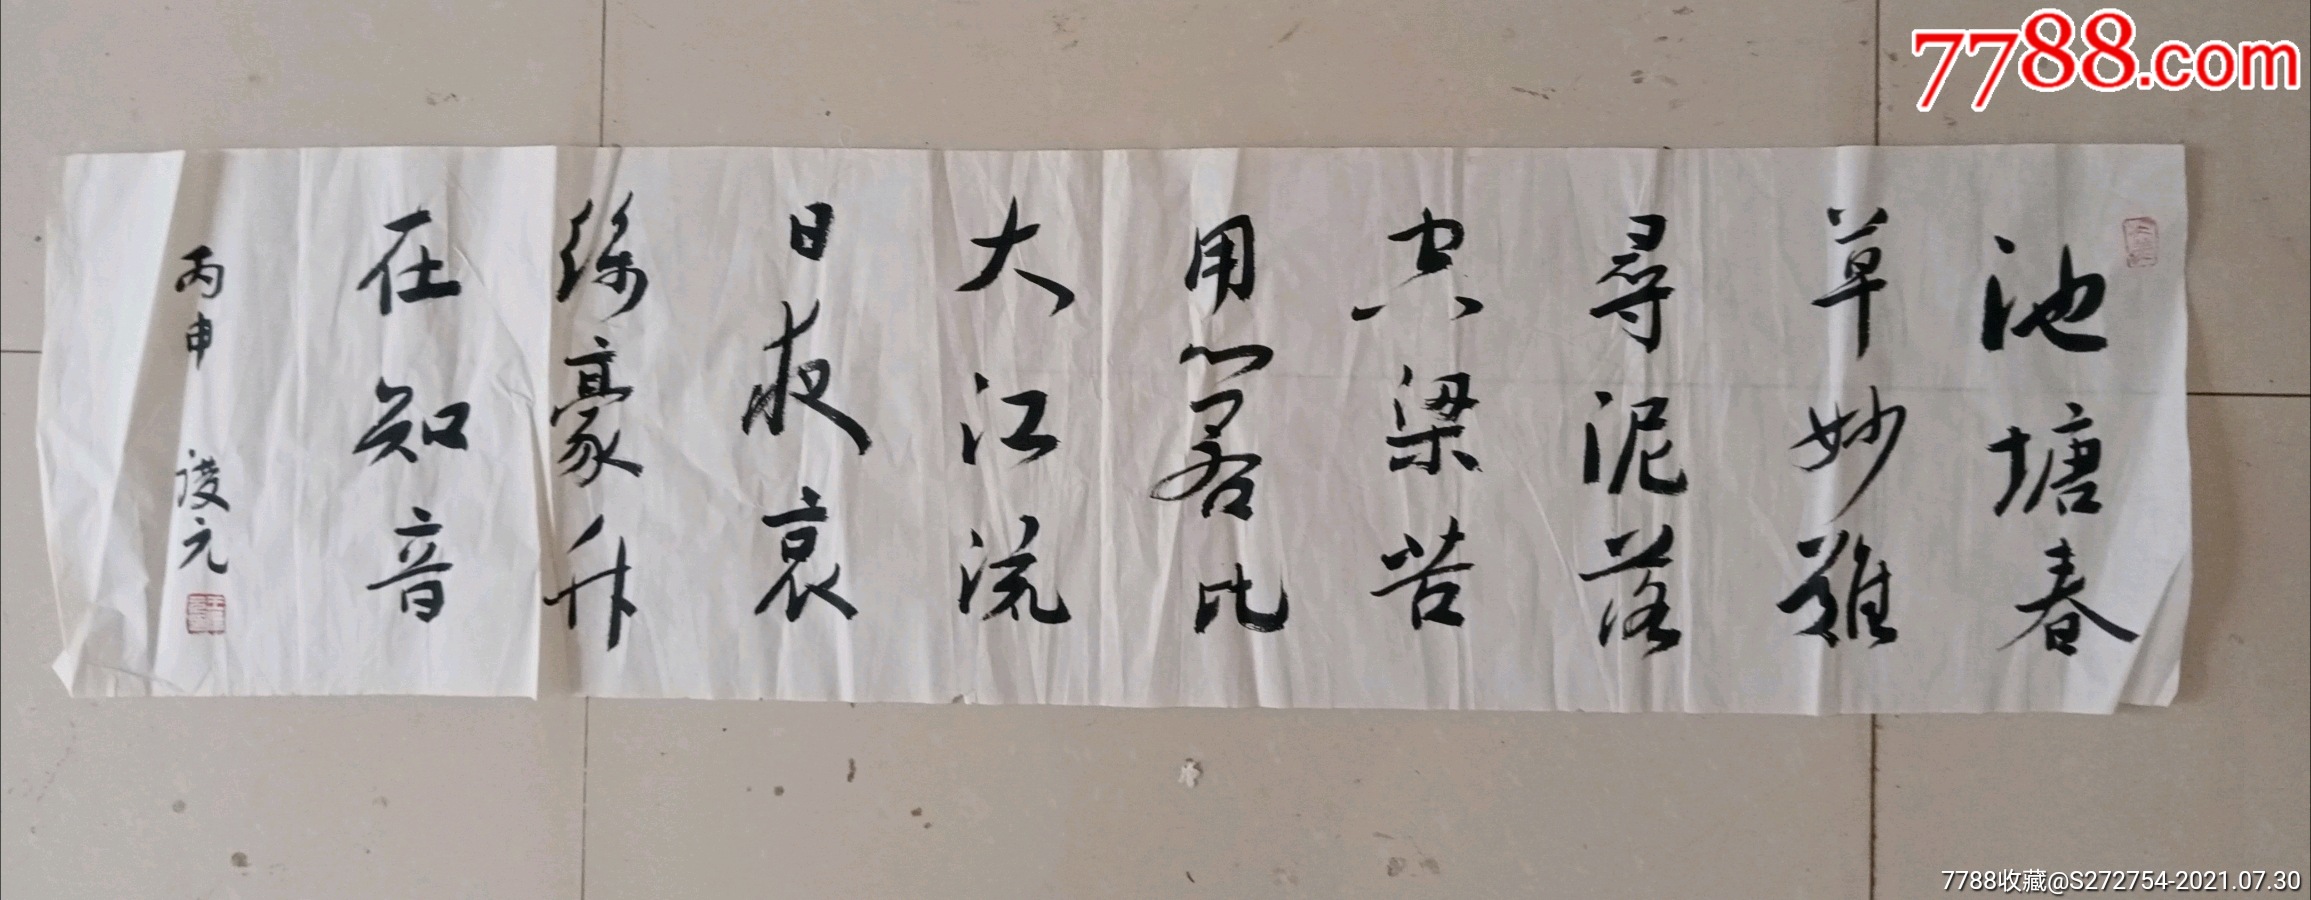 池塘春
草妙難
尋泥落
空梁苦
用心若比
大江流
日夜哀
絲豪竹
在知音
丙申 元
7788.com
7788收藏@S272754-2021.07.30